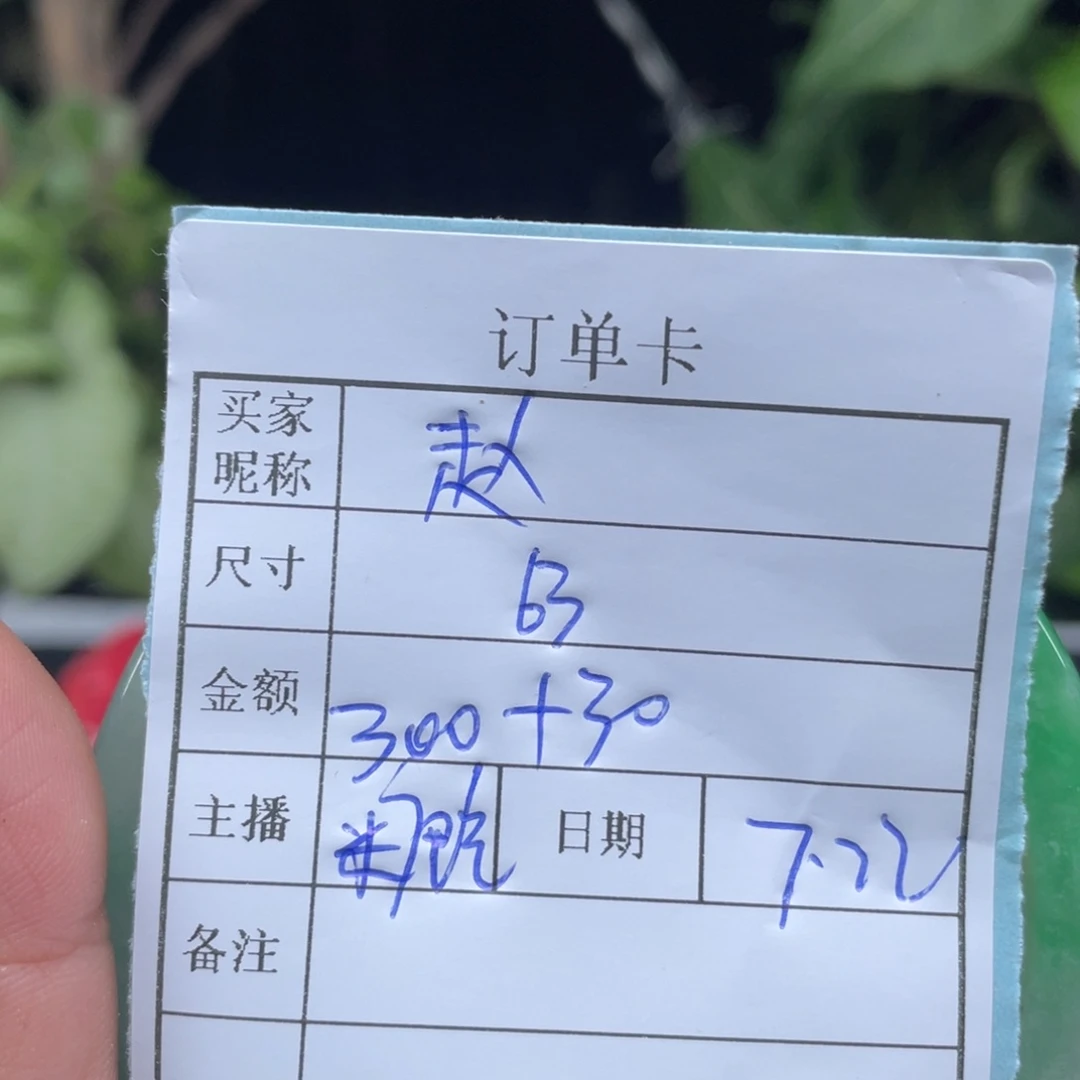 订单卡
买家昵称 赵
尺寸 63
金额 300+30
主播 日期 7.22
备注